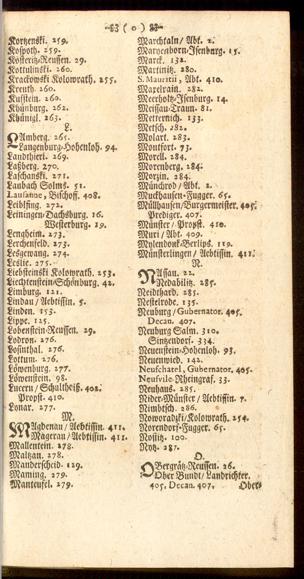 ( o )
Kortzenski. 259.
Kospoth. 259.
Köstritz-Reussen. 29.
Kottulinski. 260.
Krackowski Kolowrath. 255.
Kreuth. 260.
Kufstein. 260.
Khünburg. 262.
Khünigl. 263.
L.
LAmberg. 265.
Langenburg-Hohenloh. 94.
Landthieri. 269.
Laßberg. 270.
Laschanski. 271.
Laubach Solms. 51.
Lausanne, Bischoff. 408.
Leiblfing. 272.
Leiningen-Dachsburg. 16.
Westerburg 19.
Lengheim. 273.
Lerchenfeld. 273.
Lesgewang. 274.
Leslie. 275.
Liebsteinski Kolowrath. 253.
Liechtenstein/Schönburg. 42.
Limburg. 121.
Lindau / Aebtissin. 5.
Linden. 153.
Lippe. 125.
Lobenstein-Reussen. 29.
Lodron. 276.
Losinthal. 276.
Lottum. 276.
Löwenburg. 277.
Löwenstein. 98.
Lucern / Schultheiß. 402.
Propst. 410.
Lynar. 277.
M.
MAgdenau / Aebtissin. 411.
Magerau / Aebtissin. 411.
Mallentein. 278.
Maltzan. 278.
Manderscheid. 129.
Maming. 279.
Manteufel. 279.
Marchtaln / Abt. 2.
Maryenborn-Isenburg. 15.
Marck. 132.
Martinitz. 280.
S. Mauritii, Abt. 410.
Mapelrain. 282.
Meerholtz-Isenburg. 14.
Messau-Traun. 81.
Metternich. 133.
Metsch. 282.
Molart. 283.
Montfort. 73.
Morell. 284.
Morenberg. 284.
Morzin. 284.
Münchrod / Abt. 2.
Muckhausen-Fugger. 65.
Müllhausen / Burgermeister. 405.
Prediger. 407.
Münster / Propst. 410.
Muri / Abt. 409.
Mylendonk-Berlips. 119.
Münsterlingen / Aebtissin. 411.
N.
NAssau. 22.
Nedabilitz. 285.
Neidthard. 285.
Nestelrode. 135.
Neuburg / Gubernator. 405.
Decan. 407.
Neuburg Salm. 310.
Sintzendorf. 334.
Neuenstein-Hohenloh. 93.
Neuenwied. 142.
Neufchatel, Gubernator. 405.
Neufvile-Rheingraf. 33.
Neuhaus. 285.
Nider-Münster / Aebtissin. 7.
Nimbtsch. 286.
Noworadzki/Kolowrath. 254.
Norendorf-Fugger. 65.
Nostitz. 100.
Nytz. 287.
O.
OBergrätz-Reussen. 26.
Ober Bundt / Landrichter.
405. Decan. 407.
Ober-